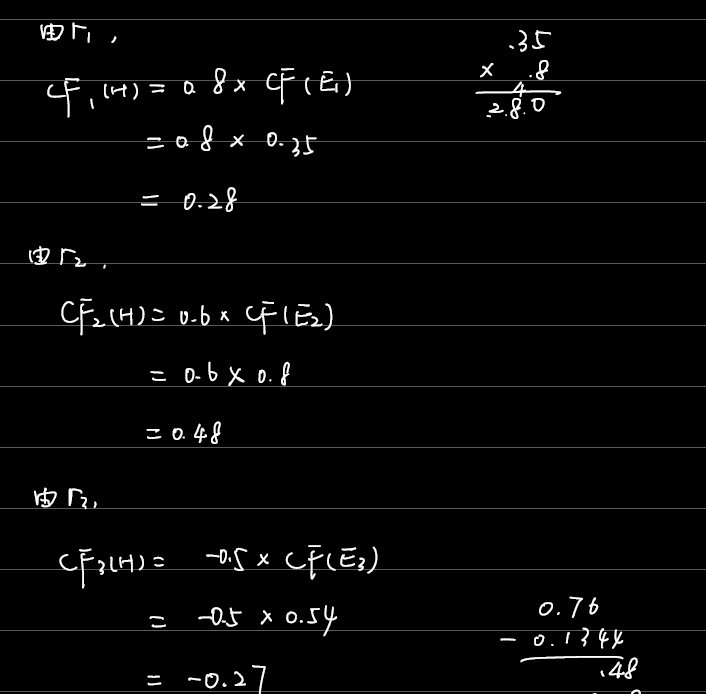 由r₁,
CF₁(H) = 0.8 × CF(E₁)
= 0.8 × 0.35
= 0.28
.35
× .8
4
2.8.0
由r₂,
CF₂(H) = 0.6 × CF(E₂)
= 0.6 × 0.8
= 0.48
由r₃,
CF₃(H) = -0.5 × CF(E₃)
= -0.5 × 0.54
= -0.27
0.76
- 0.1344
.48